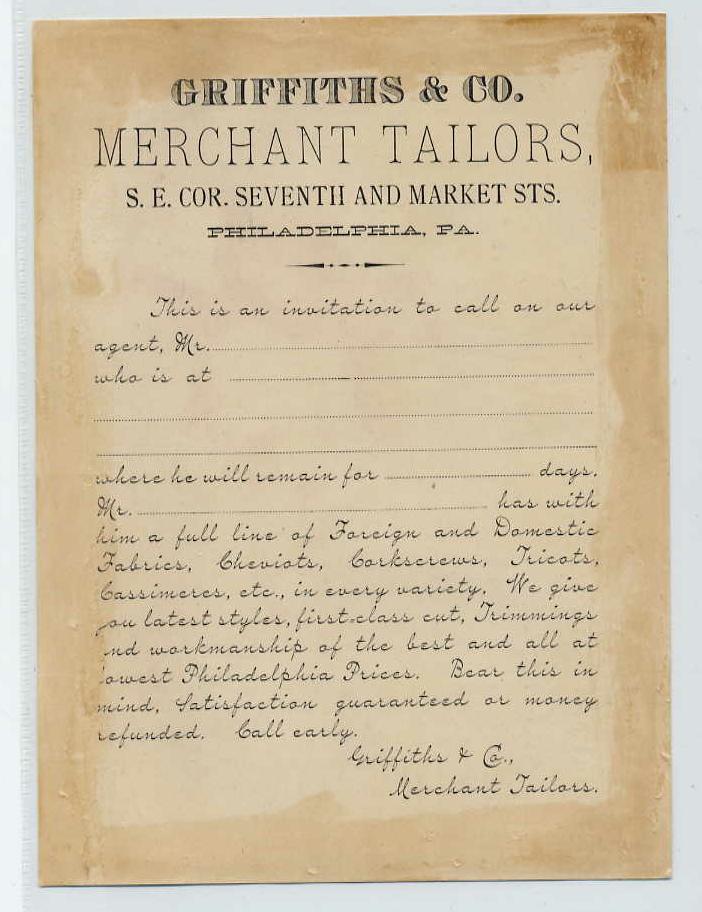 GRIFFITHS & CO.
MERCHANT TAILORS,
S. E. COR. SEVENTH AND MARKET STS.
PHILADELPHIA, PA.
This is an invitation to call on our
agent, Mr.
who is at
where he will remain for days.
Mr. has with
him a full line of Foreign and Domestic
Fabrics, Cheviots, Corkscrews, Tricots,
Cassimeres, etc., in every variety. We give
ou latest styles, first-class cut, Trimmings
nd workmanship of the best and all at
owest Philadelphia Prices. Bear this in
mind, Satisfaction guaranteed or money
refunded. Call early.
Griffiths & Co.,
Merchant Tailors.